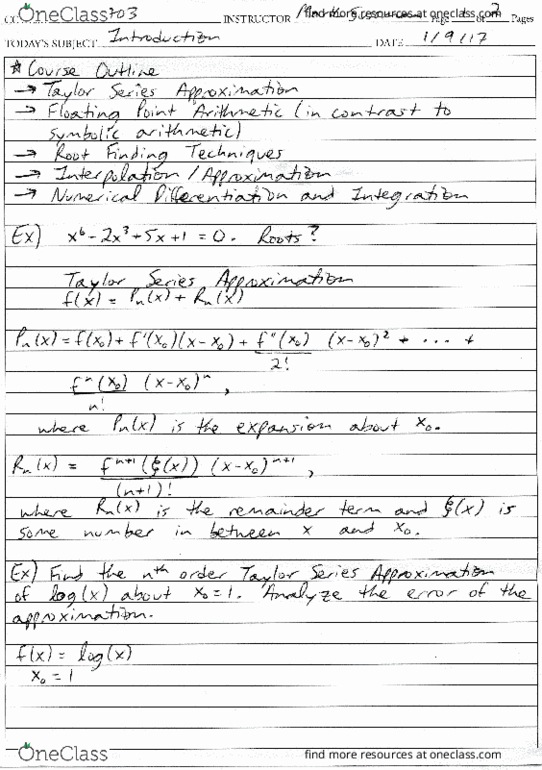 OneClass703 INSTRUCTOR find more resources at oneclass.com 2 Pages
TODAY'S SUBJECT Introduction DATE 1/9/17
* Course Outline
→ Taylor Series Approximation
→ Floating Point Arithmetic (in contrast to
symbolic arithmetic)
→ Root Finding Techniques
→ Interpolation / Approximation
→ Numerical Differentiation and Integration
Ex) x⁶-2x³+5x+1=0. Roots?
Taylor Series Approximation
f(x) = Pn(x) + Rn(x)
Pn(x) = f(x₀) + f'(x₀)(x-x₀) + f''(x₀) (x-x₀)² + ... +
2!
fⁿ(x₀) (x-x₀)ⁿ,
n!
where Pn(x) is the expansion about x₀.
Rn(x) = fⁿ⁺¹(ξ(x)) (x-x₀)ⁿ⁺¹,
(n+1)!
where Rn(x) is the remainder term and ξ(x) is
some number in between x and x₀.
Ex) Find the nth order Taylor Series Approximation
of log(x) about x₀=1. Analyze the error of the
approximation.
f(x) = log(x)
x₀ = 1
OneClass find more resources at oneclass.com